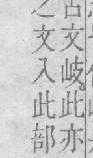 古文岐。此亦
之文入此部